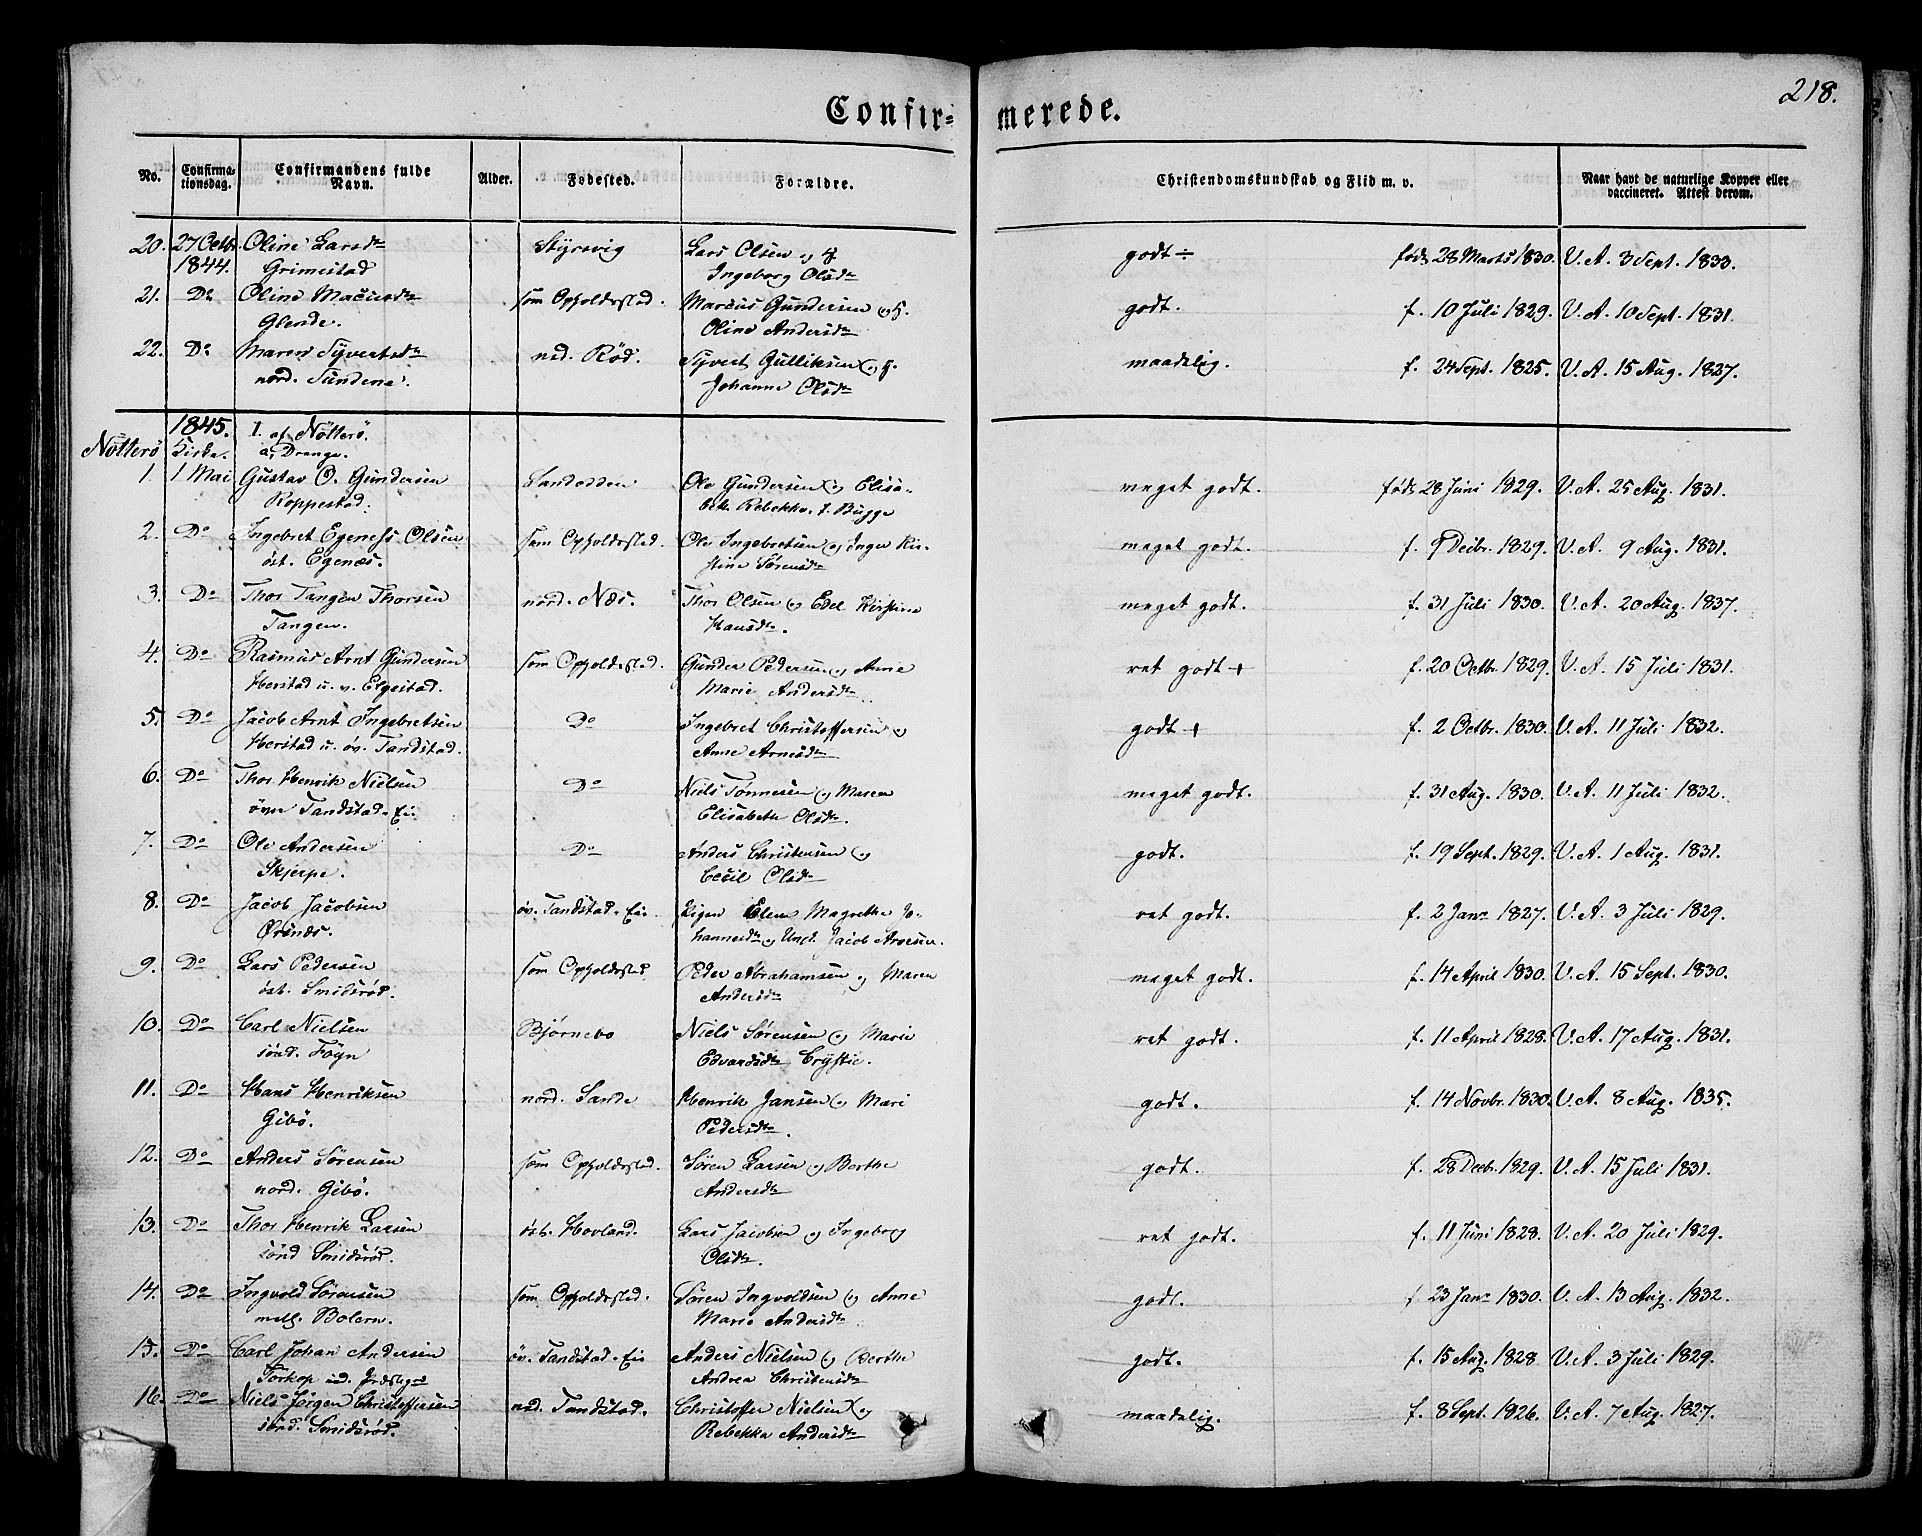 218.
Confirmerede.
No. Confirmationsdag. Confirmandens fulde Navn. Alder. Fødested. Forældre. Christendomskundskab og Flid m. v. Naar havt de naturlige Kopper eller vaccineret. Attest derom.
20. 27 Octbr. Oline Larsdtr Styrsvig Lars Olsen og H. godt ÷ født 28 Marts 1830. V. A. 3 Sept. 1833.
1844. Grimestad Ingeborg Olsdtr
21. Do Oline som Opholdssted. Marcus Gundersen og H. godt. f. 10 Juli 1829. V. A. 10 Sept. 1831.
Glende. Oline Andersdtr
22. Do Maren Syvertsdtr ned. Rød. Syvert Gulliksen og H. maadelig. f. 24 Sept. 1825. V. A. 15 Aug. 1827.
nord. Sundene. Johanne Olsdtr
1845. I. af Nøtterø.
Nøtterø Kirke. a, Drenge.
1. 1 Mai Gustav O. Gundersen Sandodden Ole Gundersen og Elisa- meget godt. født 28 Juni 1829. V. A. 25 Aug. 1831.
Roppestad. beth Rebekka f. Bugge
2. Do Ingebret Egeness Olsen som Opholdssted. Ole Ingebretsen og Inger Kir- meget godt. f. 9 Decbr. 1829. V. A. 9 Aug. 1831.
øst. Egenæs. stine Sørensdtr
3. Do Thor Tangen Thorsen nord. Næs. Thor Olsen og Edel Kirstine meget godt. f. 31 Juli 1830. V. A. 20 Aug. 1837.
Tangen. Hansdtr.
4. Do Rasmus Arnt Gundersen som Opholdssted. Gunder Pedersen og Anne ret godt + f. 20 Octbr. 1829. V. A. 15 Juli 1831.
Herstad u. v. Elgestad. Marie Andersdtr
5. Do Jacob Arnt Ingebretsen Do Ingebret Christoffersen og godt + f. 2 Octbr. 1830. V. A. 11 Juli 1832.
Herstad u. øv. Tandstad. Anne Arnesdtr
6. Do Thor Henrik Nielsen Do Niels Tønnesen og Maren meget godt. f. 31 Aug. 1830. V. A. 11 Juli 1832.
øvre Tandstad-Eie Elisabeth Olsdtr.
7. Do Ole Andersen Do Anders Christensen og godt. f. 19 Sept. 1829. V. A. 1 Aug. 1831.
Skjerpe. Cecil Olsdtr
8. Do Jacob Jacobsen øv. Tandstad-Eie. Pigen Elen Magrethe Jo- ret godt. f. 2 Janr 1827. V. A. 3 Juli 1829.
Ørsnæs. hannesdtr og Ungk. Jacob
9. Do Lars Pedersen som Opholdssted. Peder Abrahamsen og Maren meget godt. f. 14 April 1830. V. A. 15 Sept. 1830.
øst. Smidsrød. Andersdtr
10. Do Carl Nielsen Bjørnebo Niels Sørensen og Marie ret godt. f. 11 April 1828. V. A. 17 Aug. 1831.
sønd. Føyn Edvardsdtr
11. Do Hans Henriksen nord. Sande Henrik Jansen og Mari godt. f. 14 Novbr. 1830. V. A. 8 Aug. 1835.
Gibø. Pedersdtr.
12. Do Anders Sørensen som Opholdssted. Søren Larsen og Berthe godt. f. 28 Decbr. 1829. V. A. 15 Juli 1831.
nord. Gibø. Andersdtr
13. Do Thor Henrik Larsen øst. Hovland. Lars Jacobsen og Ingeborg ret godt. f. 11 Juni 1828. V. A. 20 Juli 1829.
sønd Smidsrød. Olsdtr.
14. Do Ingvold Sørensen som Opholdssted. Søren Ingvoldsen og Anne godt. f 23 Janr 1830. V. A. 13 Aug. 1832.
mell. Bolærn. Marie Andersdtr
15. Do Carl Johan Andersen øv. Tandstad-Eie Anders Nielsen og Berthe godt. f. 15 Aug. 1828. V. A. 3 Juli 1829.
Torkop Andrea Christensdtr
16. Do Niels Jørgen Christoffersen ned. Tandstad. Christoffer Nielsen og maadelig. f. 8 Sept. 1826. V. A. 7 Aug. 1827.
sønd. Smidsrød. Rebekka Andersdtr